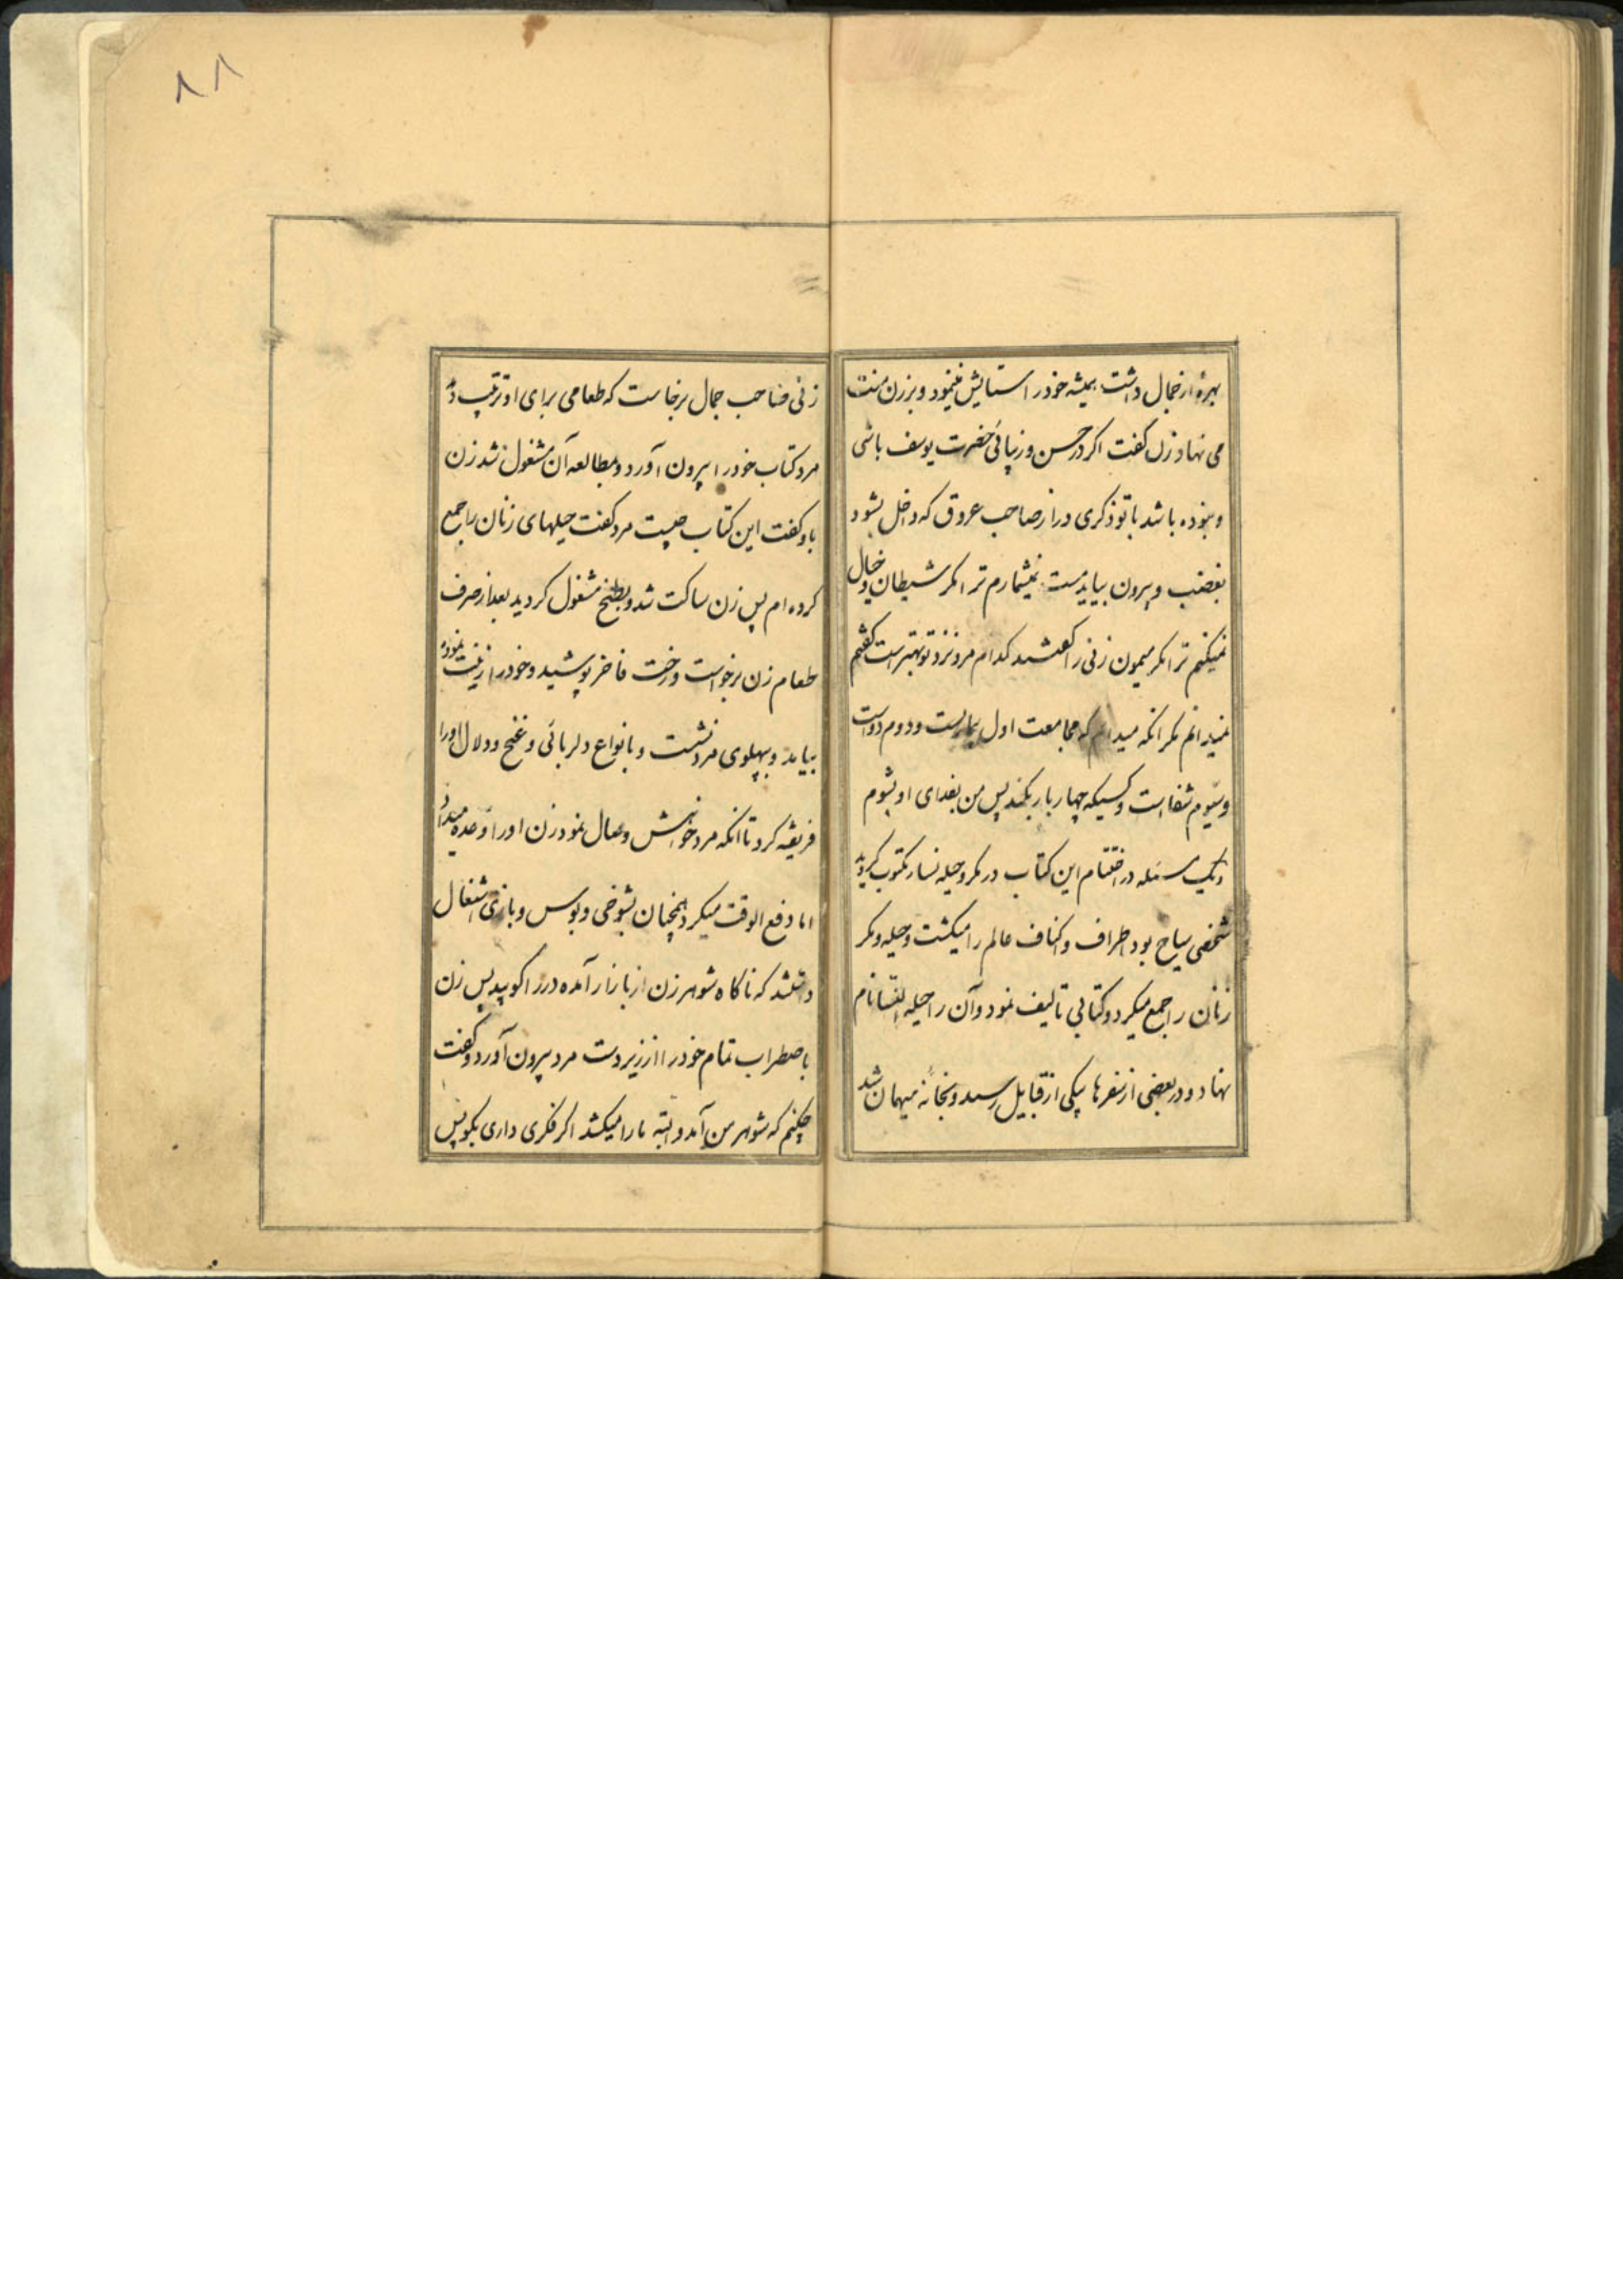 بهرهٔ از جمال داشت همیشه خود را ستایش مینمود و بر زن منت
می نهاد زن گفت اگر در حسن و زیبائی حضرت یوسف باشی
و نبوده باشد با تو ذکری دراز صاحب عروق که داخل بشود
بغضب و بیرون بیاید مست نمیشمارم ترا مگر شیطان و خیال
نمیکنم ترا مگر میمون زنی را گفتند کدام مرد نزد تو بهتر است گفت
نمیدانم مگر آنکه میدانم که مجامعت اول بیماریست و دوم دواست
و سیوم شفا است و کسیکه چهار بار بکند پس من بفدای او بشوم
و یک مسئله در اختتام این کتاب در مکر و حیله نسا مکتوب گردید
شخصی سیاح بود اطراف و اکناف عالم را میگشت و حیله و مکر
زنان را جمع میکرد و کتابی تالیف نمود و آن را حیله النسا نام
نهاد و در بعضی از سفرها بیکی از قبایل رسید و بخانه میهمان شد
۸۸
زنی صاحب جمال برخاست که طعامی برای او ترتیب دهد
مرد کتاب خود را بیرون آورد و بمطالعه آن مشغول شد زن
باو گفت این کتاب چیست مرد گفت حیلهای زنان را جمع
کرده ام پس زن ساکت شد و بطبخ مشغول گردید بعد از صرف
طعام زن برخواست و رخت فاخر پوشید و خود را زینت نموده
بیامد و بپهلوی مرد نشست و بانواع دلربائی و غنج و دلال او را
فریفته کرد تا آنکه مرد خواهش وصال نمود زن او را وعده میداد
اما دفع الوقت میکرد همچنان بشوخی و بوس و بازی اشتغال
داشتند که ناگاه شوهر زن از بازار آمده در را کوبید پس زن
باضطراب تمام خود را از زیر دست مرد بیرون آورد و گفت
چکنم که شوهر من آمد و البته ما را میکشد اگر فکری داری بگو پس